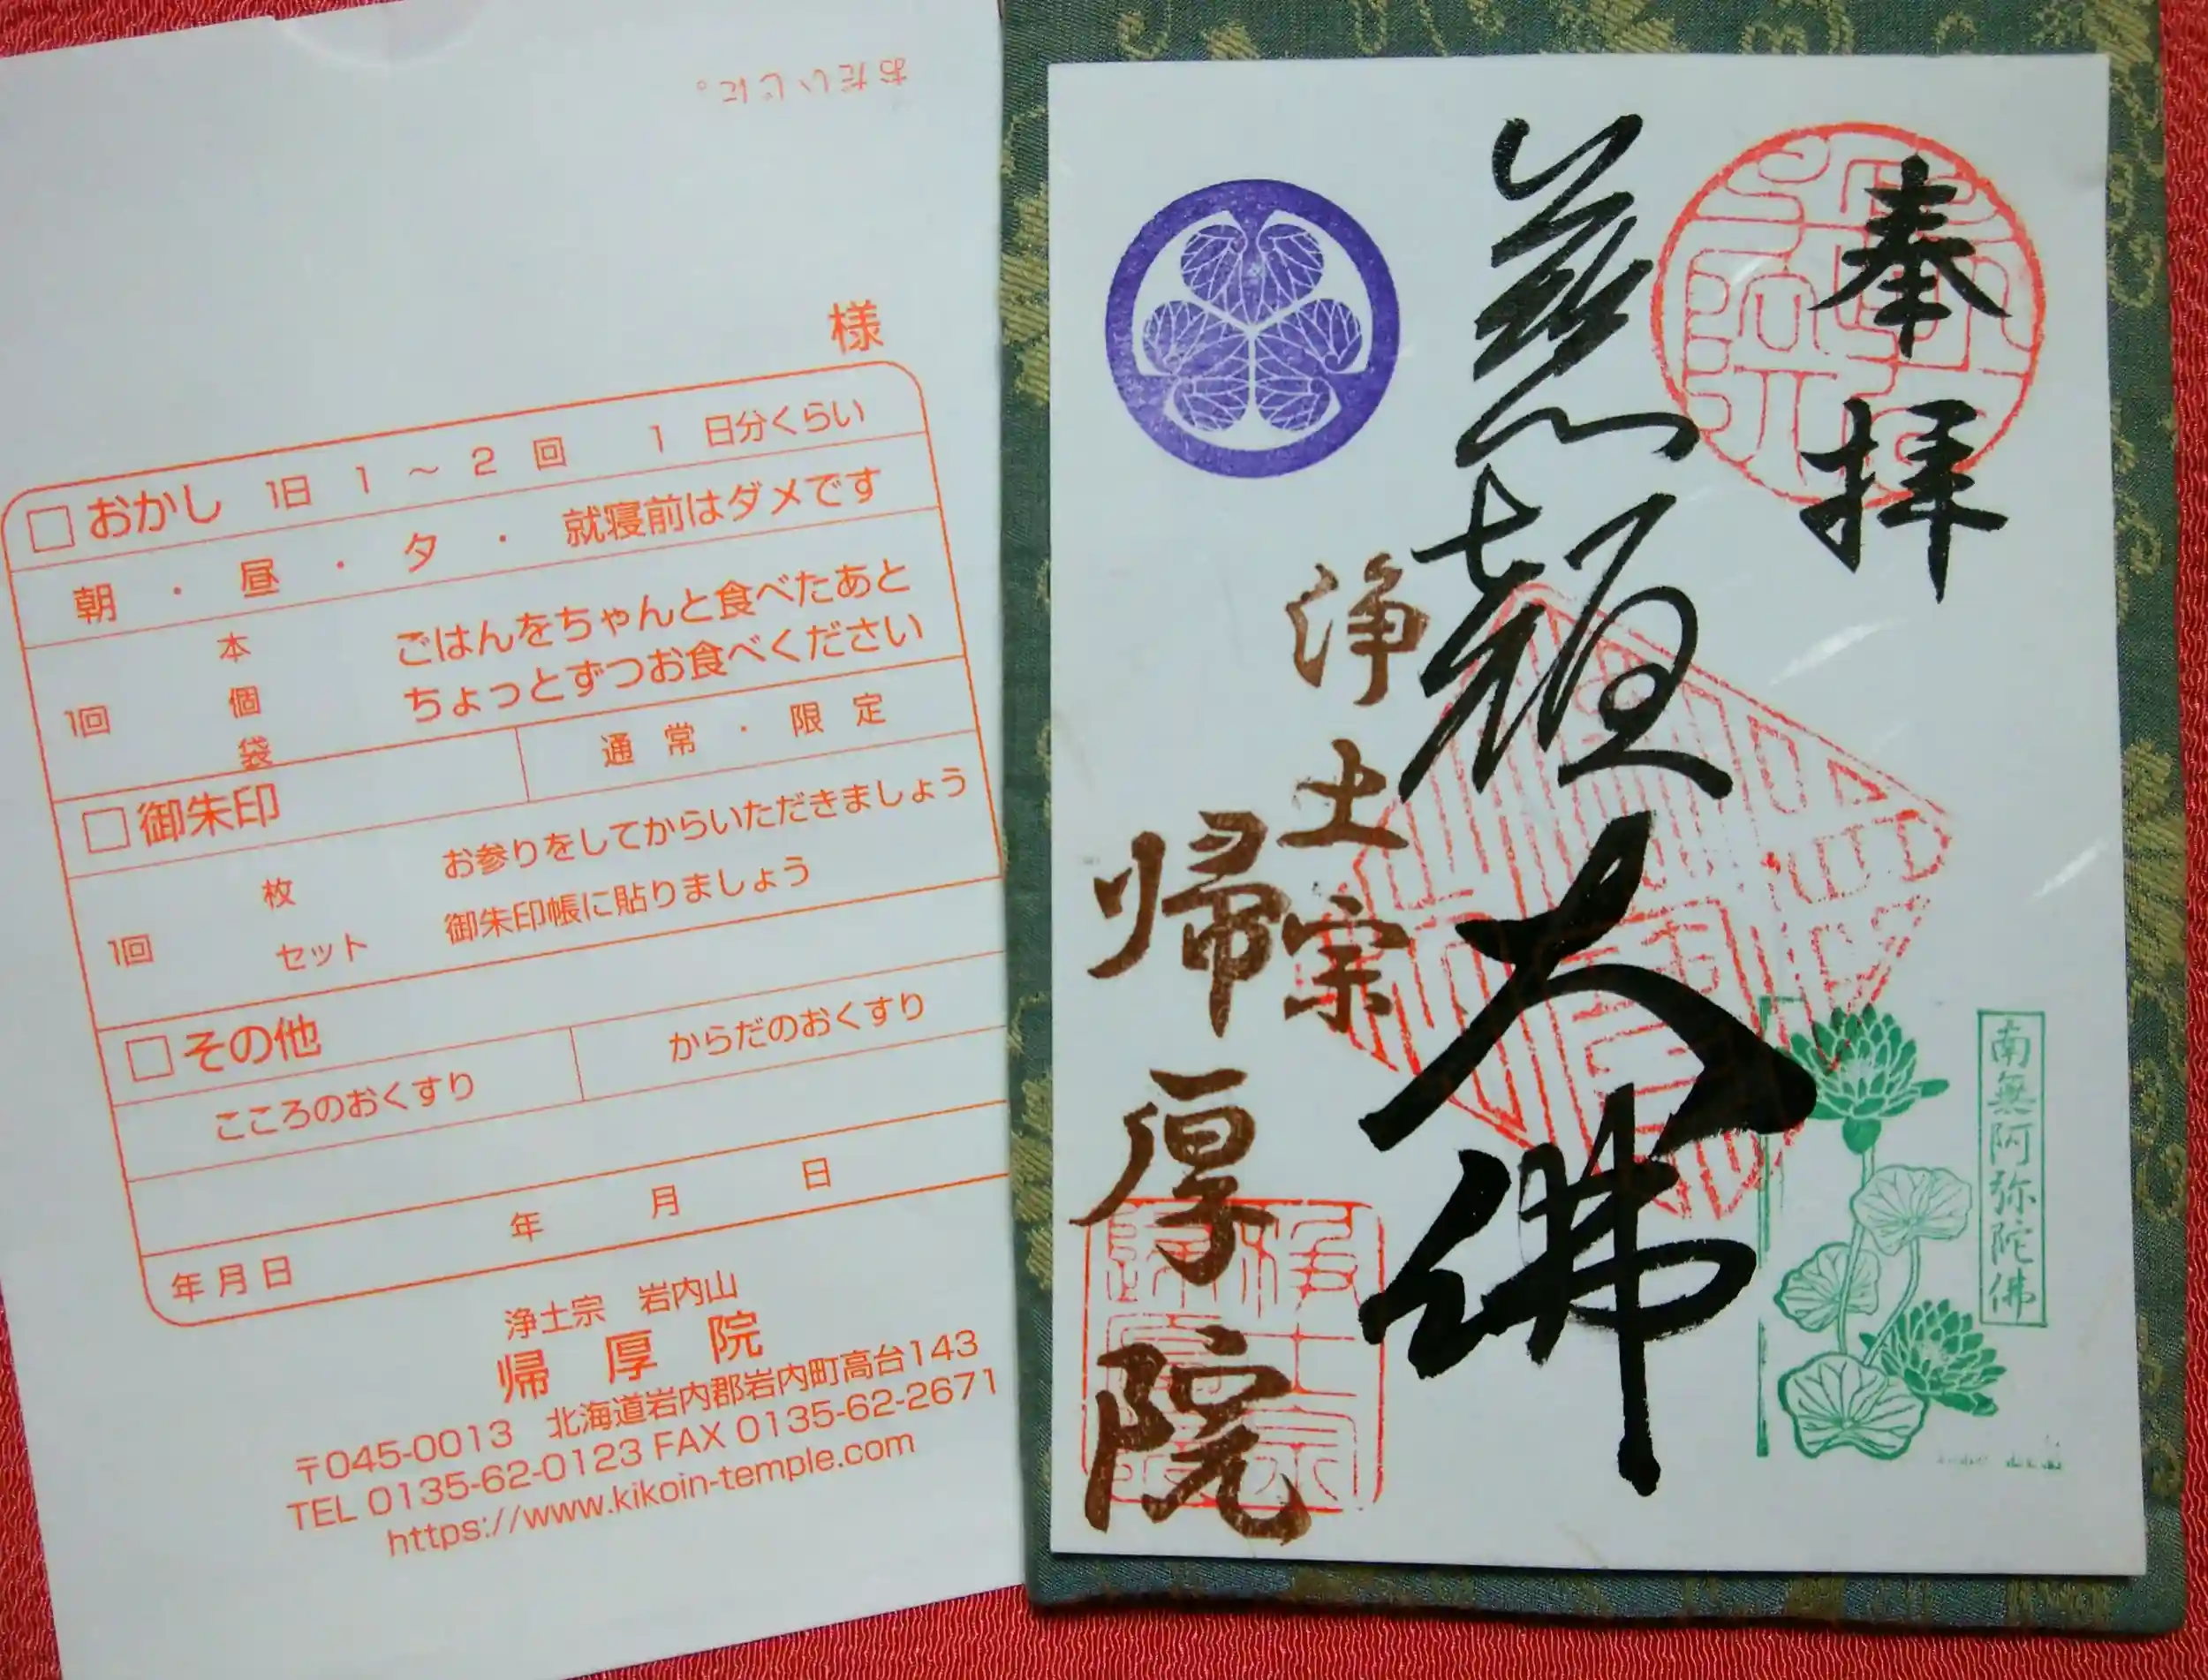 おだいじに。
様
□おかし 1日 1 ～ 2 回 1 日分くらい
朝 ・ 昼 ・ 夕 ・ 就寝前はダメです
1回 本 個 袋
ごはんをちゃんと食べたあと
ちょっとずつお食べください
□御朱印 通常 ・ 限定
1回 枚 セット
お参りをしてからいただきましょう
御朱印帳に貼りましょう
□その他
こころのおくすり からだのおくすり
年月日 年 月 日
浄土宗 岩内山
帰厚院
〒045-0013 北海道岩内郡岩内町高台143
TEL 0135-62-0123 FAX 0135-62-2671
https://www.kikoin-temple.com
奉拝
慈顔大佛
浄土宗
帰厚院
南無阿弥陀佛